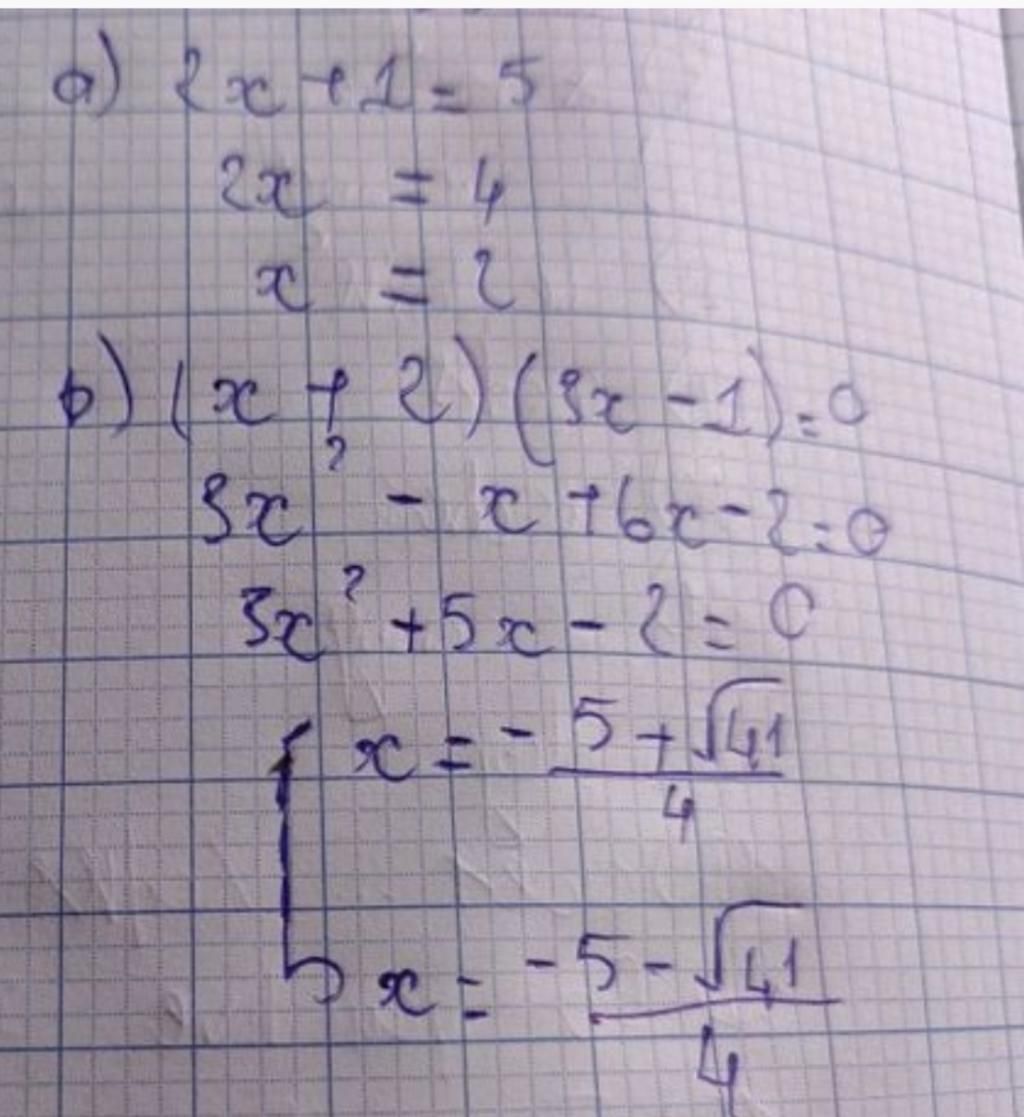 a) 2x + 1 = 5
2x = 4
x = 2
b) (x + 2)(3x - 1) = 0
3x² - x + 6x - 2 = 0
3x² + 5x - 2 = 0
x = - 5 + √41 / 4
x = - 5 - √41 / 4